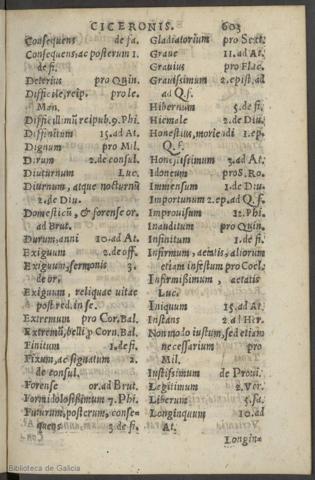 CICERONIS. 603
Consequens de fa.
Consequens, ac posterum 1.
de fi.
Deterius pro Quin.
Difficile, reip. pro le.
Man.
Difficillimũ reipub. 9. Phi.
Distinctum 15. ad At.
Dignum pro Mil.
Dirum 2. de consul.
Diuturnum Luc.
Diurnum, atque nocturnũ
2. de Diu.
Domesticũ, & forense or.
ad Brut.
Durum, anni 10. ad At.
Exiguum 2. de off.
Exiguum, sermonis 3.
de or.
Exiguum, reliquae vitae
post red. in se.
Extremum pro Cor. Bal.
Extremũ, belli, p Corn. Bal.
Finitum 1. de fi.
Fixum, ac signatum 2.
de consul.
Forense or. ad Brut.
Formidolosissimum 7. Phi.
Futurum, posterum, conse-
quens 3. de fi.
Gladiatorium pro Sext.
Graue 11. ad At.
Grauius pro Flac.
Grauissimum 2. epist. ad
ad Q. f.
Hibernum 5. de fi.
Hiemale 2. de Diu.
Honestius, moriendi 1. ep.
Q. f.
Honestissimum 3. ad At.
Idoneum pro S. Ro.
Immensum 1. de Diu.
Importunum 2. ep. ad Q. f.
Improuisum 12. Phi.
Inauditum pro Quin.
Infinitum 1. de fi.
Infirmum, aetatis, aliorum
etiam infestum pro Coel.
Infirmissimum, aetatis
Luc.
Iniquum 15. ad At.
Instans 2. ad Her.
Non modo iustum, sed etiam
necessarium pro
Mil.
Iustissimum de Proui.
Legitimum 2. Ver.
Liberum 5. fa.
Longinquum 10. ad
At.
Longin-
Biblioteca de Galicia